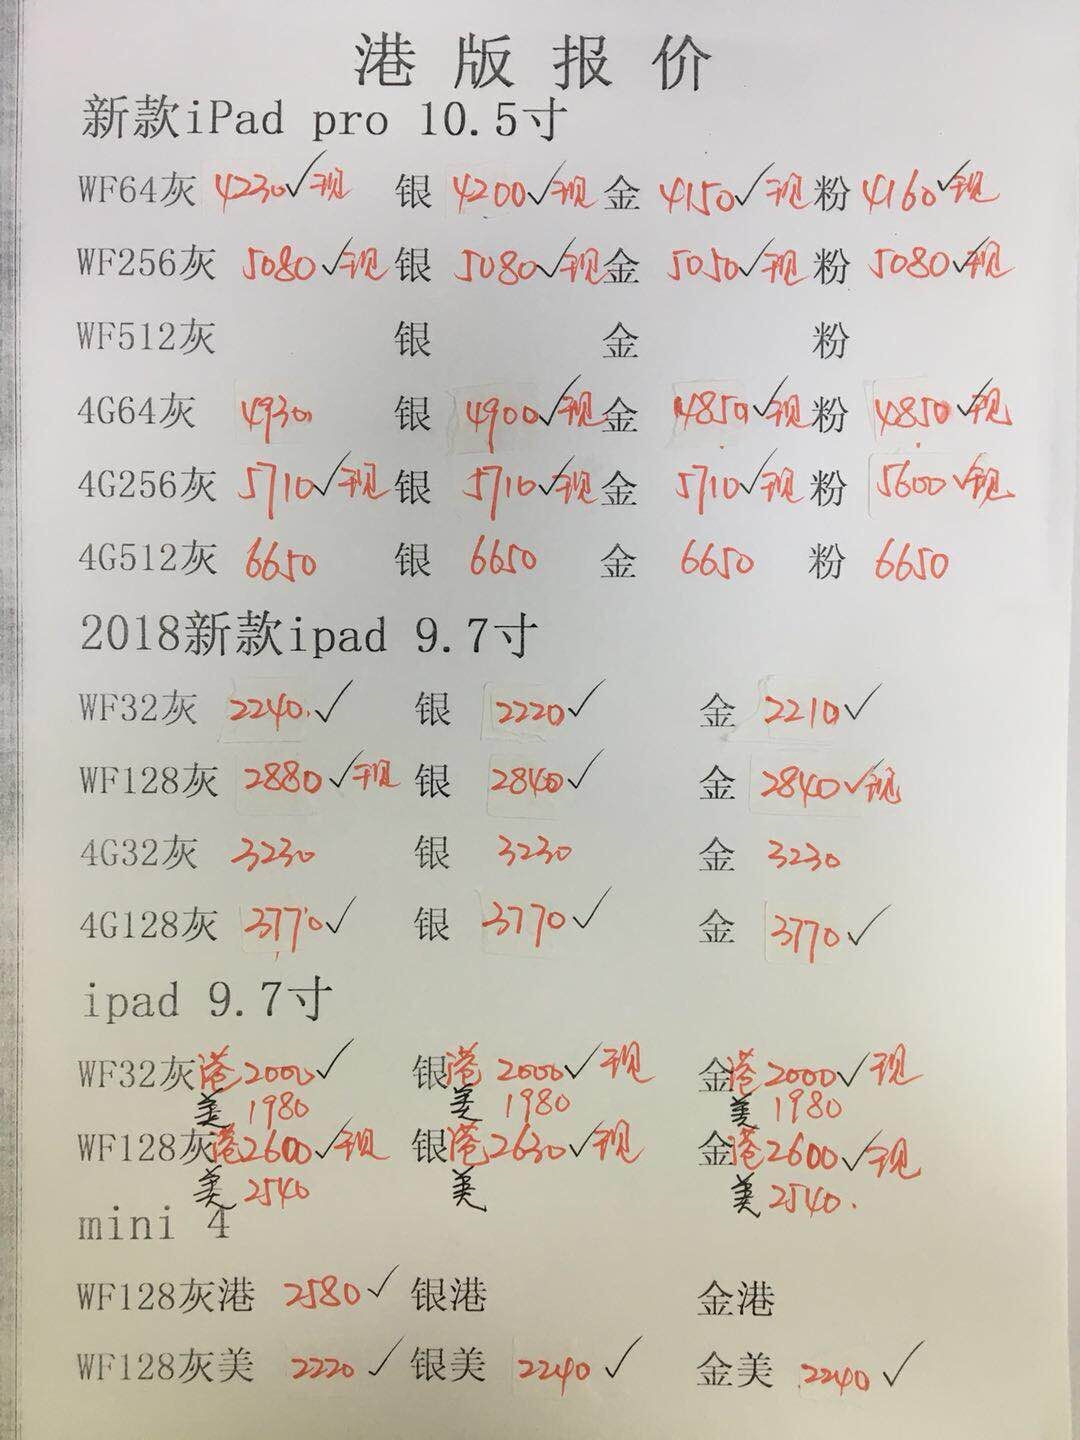 港版报价
新款iPad pro 10.5寸
WF64灰 4230✓现 银 4200✓现 金 4150✓现 粉 4160✓现
WF256灰 5080✓现 银 5080✓现 金 5050✓现 粉 5080✓现
WF512灰 银 金 粉
4G64灰 4930 银 4900✓现 金 4850✓现 粉 4850✓现
4G256灰 5710✓现 银 5710✓现 金 5710✓现 粉 5600✓现
4G512灰 6650 银 6650 金 6650 粉 6650
2018新款ipad 9.7寸
WF32灰 2240✓ 银 2220✓ 金 2210✓
WF128灰 2880✓现 银 2840✓ 金 2840✓现
4G32灰 3230 银 3230 金 3230
4G128灰 3770✓ 银 3770✓ 金 3770✓
ipad 9.7寸
WF32灰港2000✓ 银港2000✓现 金港2000✓现
美1980 美1980 美1980
WF128灰港2600✓现 银港2630✓现 金港2600✓现
美2540 美 美2540.
mini 4
WF128灰港 2580✓ 银港 金港
WF128灰美 2220✓ 银美 2240✓ 金美 2240✓